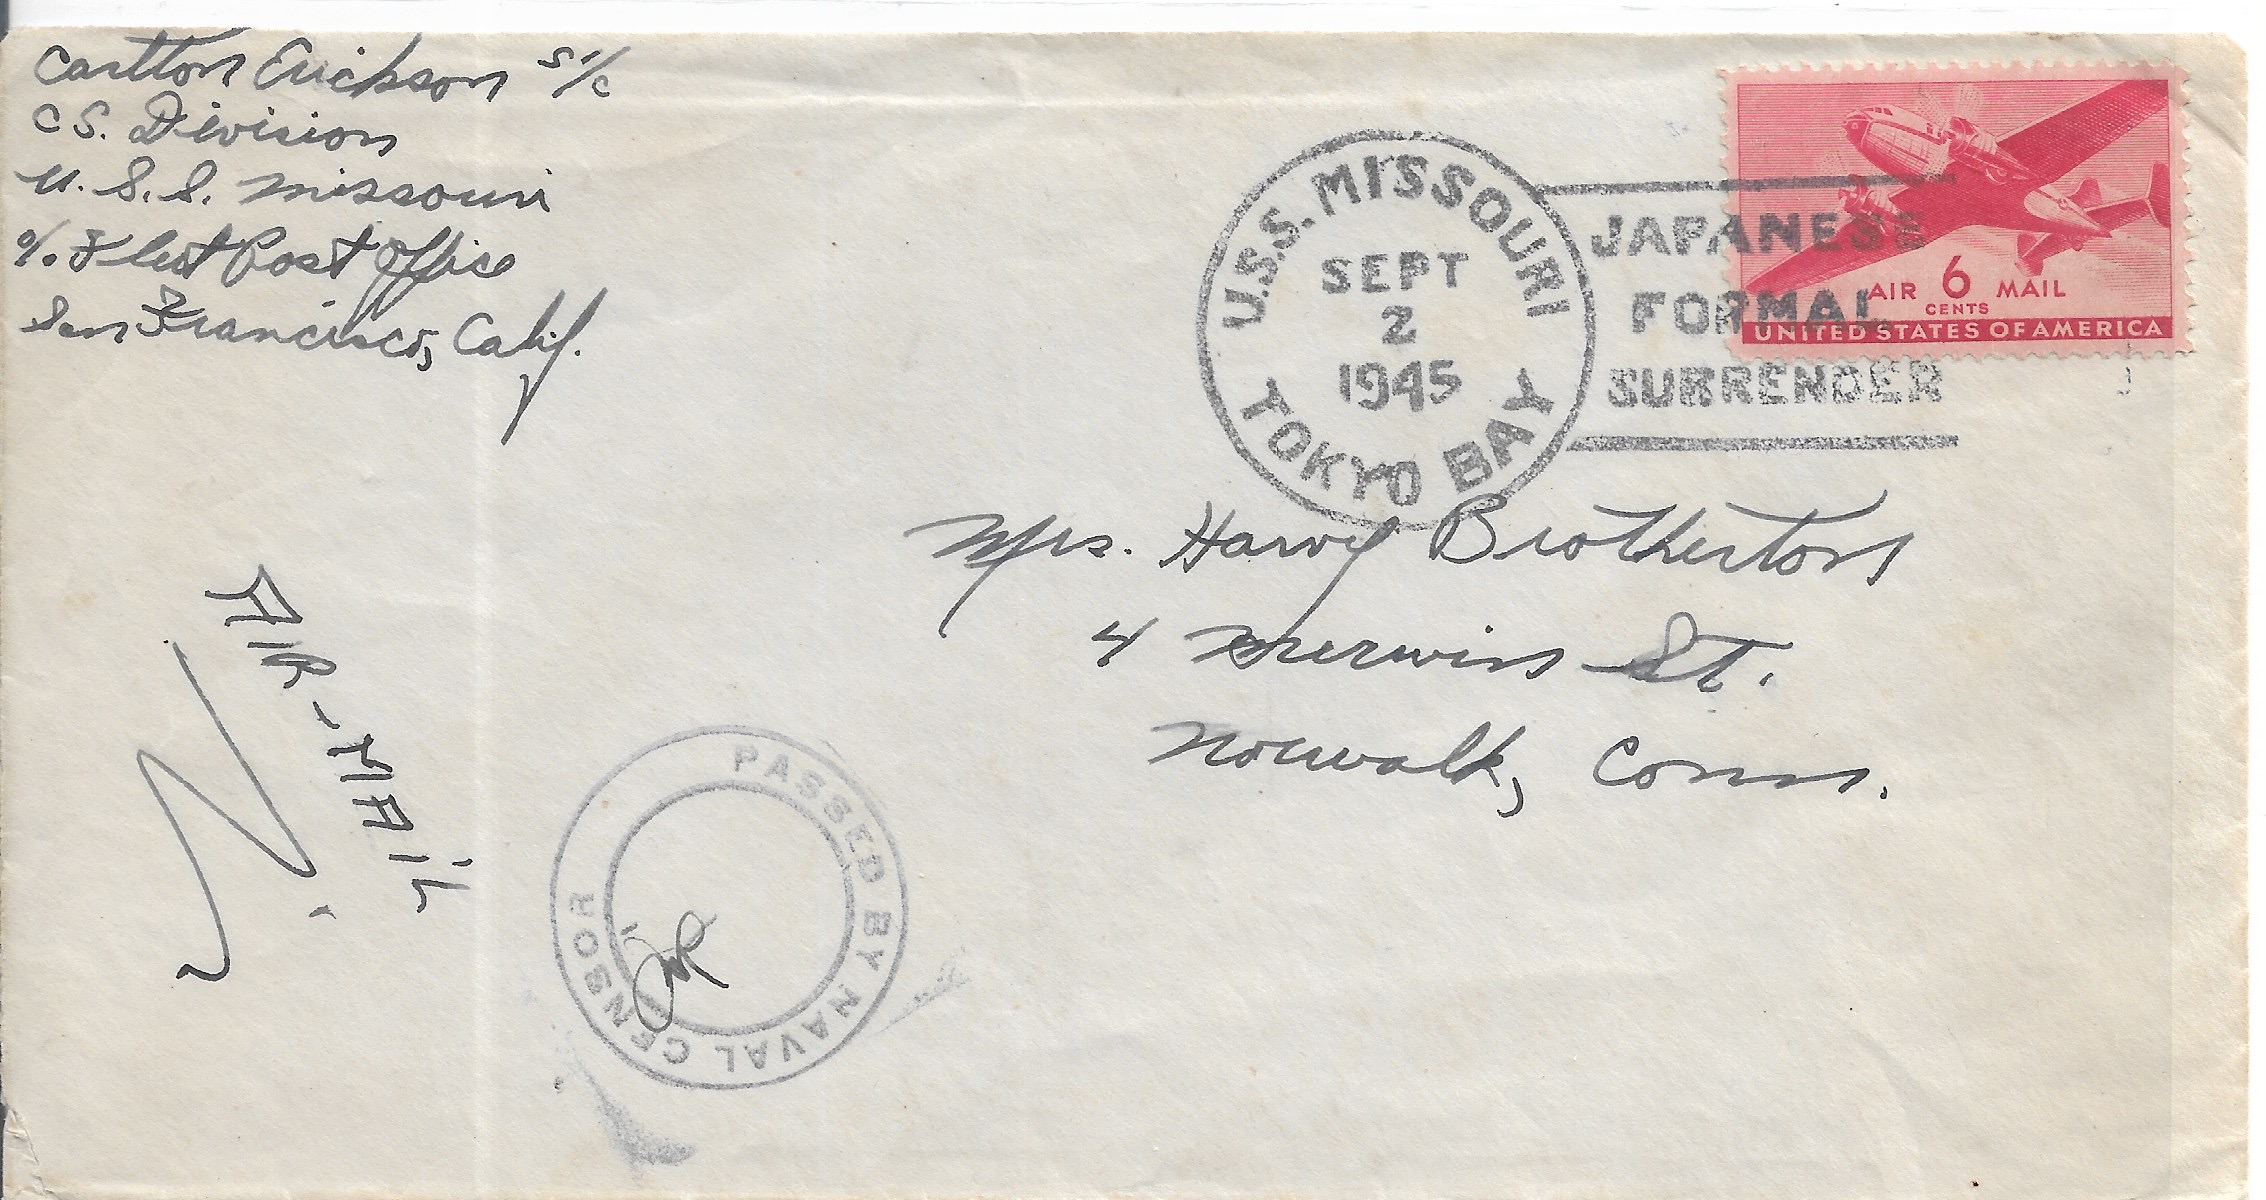 Carlton Erickson S 1/c
C S. Division
U. S. S. Missouri
c/o Fleet Post Office
San Francisco, Calif.
U.S.S. MISSOURI
SEPT
2
1945
TOKYO BAY
JAPANESE
FORMAL
SURRENDER
AIR 6 MAIL
CENTS
UNITED STATES OF AMERICA
Mrs. Harvey Brotherton
4 Merwin St.
Norwalk, Conn.
AIR-MAIL
PASSED BY NAVAL CENSOR